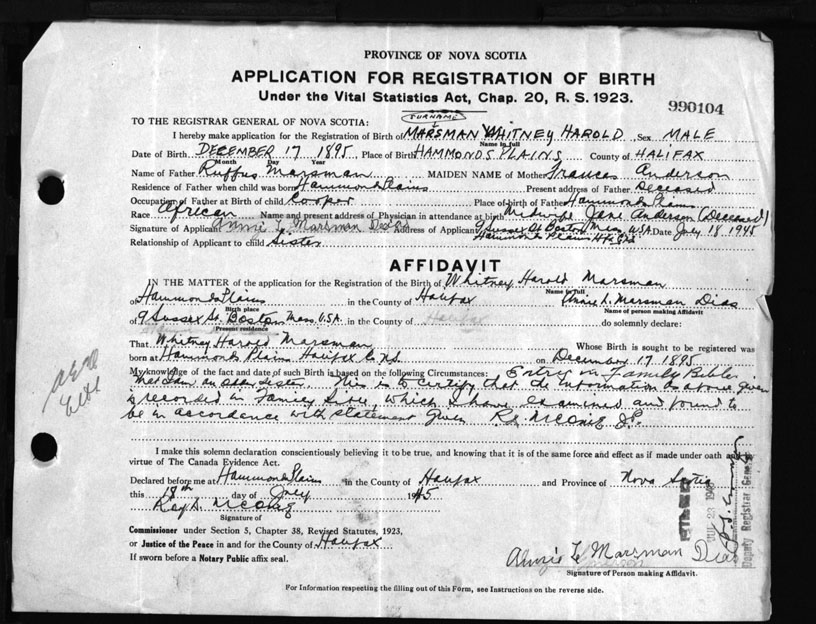 PROVINCE OF NOVA SCOTIA
APPLICATION FOR REGISTRATION OF BIRTH
Under the Vital Statistics Act, Chap. 20, R. S. 1923.
990104
SURNAME
TO THE REGISTRAR GENERAL OF NOVA SCOTIA:
I hereby make application for the Registration of Birth of MARSMAN WHITNEY HAROLD Sex MALE
Name in full
Date of Birth DECEMBER 17 1895 Place of Birth HAMMONDS PLAINS County of HALIFAX
Month Day Year
Name of Father Ruffus Marsman MAIDEN NAME of Mother Frances Anderson
Residence of Father when child was born Hammonds Plains Present address of Father Deceased
Occupation of Father at Birth of child Cooper Place of birth of Father Hammonds Plains
Race African Name and present address of Physician in attendance at birth Midwife Jane Anderson (Deceased)
Signature of Applicant Annie L. Marsman Dias Address of Applicant 9 Sussex St Boston Mass USA Date July 18 1945
Hammonds Plains Hfx Co NS
Relationship of Applicant to child Sister
AFFIDAVIT
IN THE MATTER of the application for the Registration of the Birth of Whitney Harold Marsman
Name in full
of Hammonds Plains in the County of Halifax Annie L. Marsman Dias
Birth place Name of person making Affidavit
of 9 Sussex St. Boston Mass. U.S.A. in the County of Halifax do solemnly declare:
Present residence
That Whitney Harold Marsman Whose Birth is sought to be registered was
born at Hammonds Plains Halifax Co N.S. on December 17 1895
My knowledge of the fact and date of such Birth is based on the following Circumstances: Entry in Family Bible
that I am an older sister. This is to certify that the information as above given
is recorded in Family Bible, which I have examined and found to
be in accordance with statement given
I make this solemn declaration conscientiously believing it to be true, and knowing that it is of the same force and effect as if made under oath and by
virtue of The Canada Evidence Act.
Declared before me at Hammonds Plains in the County of Halifax and Province of Nova Scotia
this 18th day of July 1945
Signature of
Commissioner under Section 5, Chapter 38, Revised Statutes, 1923,
or Justice of the Peace in and for the County of Halifax
If sworn before a Notary Public affix seal.
FILED
JUL 23 1945
Deputy Registrar General
Annie L. Marsman Dias
Signature of Person making Affidavit.
For Information respecting the filling out of this Form, see Instructions on the reverse side.